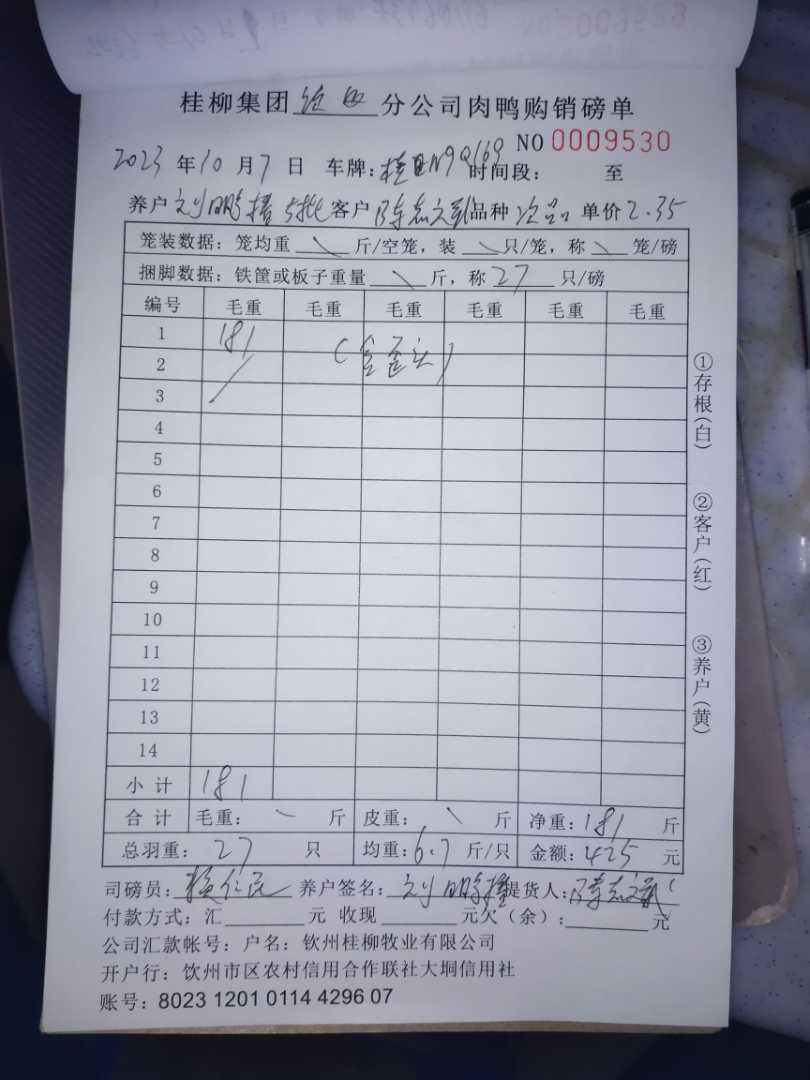 桂柳集团 分公司肉鸭购销磅单
NO 0009530
2023 年 10 月 7 日 车牌: 时间段: 至
养户 刘鹏 客户 陈志文 品种 次品 单价 2.35
笼装数据: 笼均重 \ 斤/空笼, 装 \ 只/笼, 称 \ 笼/磅
捆脚数据: 铁筐或板子重量 \ 斤, 称 27 只/磅
编号 毛重 毛重 毛重 毛重 毛重 毛重
1 181
2 (含歪头)
3
4
5
6
7
8
9
10
11
12
13
14
小计 181
合计 毛重: \ 斤 皮重: \ 斤 净重: 181 斤
总羽重: 27 只 均重: 6.7 斤/只 金额: 425 元
司磅员: 养户签名: 刘鹏 提货人: 陈志文
付款方式: 汇 元 收现 元欠(余): 元
公司汇款帐号: 户名: 钦州桂柳牧业有限公司
开户行: 饮州市区农村信用合作联社大垌信用社
账号: 8023 1201 0114 4296 07
①存根(白)
②客户(红)
③养户(黄)